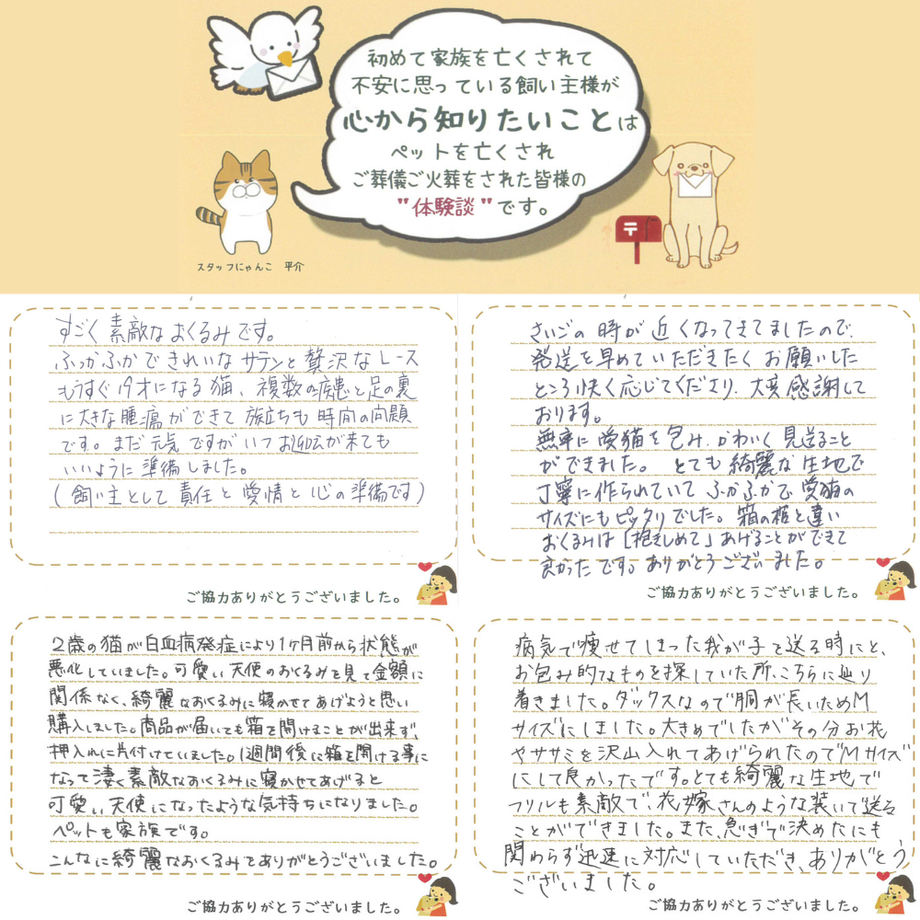 初めて家族を亡くされて
不安に思っている飼い主様が
心から知りたいことは
ペットを亡くされ
ご葬儀ご火葬をされた皆様の
"体験談"です。
スタッフにゃんこ 平介
すごく素敵なおくるみです。
ふっかふかできれいなサテンと贅沢なレース
もうすぐ19才になる猫、複数の病患と足の裏
に大きな腫瘍ができて旅立ちも時間の問題
です。まだ元気ですがいつお迎えが来ても
いいように準備しました。
(飼い主として責任と愛情と心の準備です)
ご協力ありがとうございました。
さいごの時が近くなってきてましたので、
発送を早めていただきたくお願いした
ところ快く応じてくださり、大変感謝して
おります。
無事に愛猫を包み、かわいく見送ること
ができました。とても綺麗な生地で
丁寧に作られていてふかふかで愛猫の
サイズにもピッタリでした。箱の柩と違い
おくるみは「抱きしめて」あげることができて
良かったです。ありがとうございました。
ご協力ありがとうございました。
2歳の猫が白血病発症により1ヶ月前から状態が
悪化していました。可愛い天使のおくるみを見て金額に
関係なく、綺麗なおくるみに寝かせてあげようと思い
購入しました。商品が届いても箱を開けることが出来ず、
押入れに片付けていました。1週間後に箱を開ける事に
なって凄く素敵なおくるみに寝かせてあげると
可愛い天使になったような気持ちになりました。
ペットも家族です。
こんなに綺麗なおくるみでありがとうございました。
ご協力ありがとうございました。
病気で痩せてしまった我が子を送る時にと、
お包み的なものを探していた所、こちらに辿り
着きました。ダックスなので胴が長いためM
サイズにしました。大きめでしたがその分お花
やササミを沢山入れてあげられたのでMサイズ
にして良かったです。とても綺麗な生地で
フリルも素敵で、花嫁さんのような装いで送る
ことができました。また、急ぎで決めたにも
関わらず迅速に対応していただき、ありがとう
ございました。
ご協力ありがとうございました。